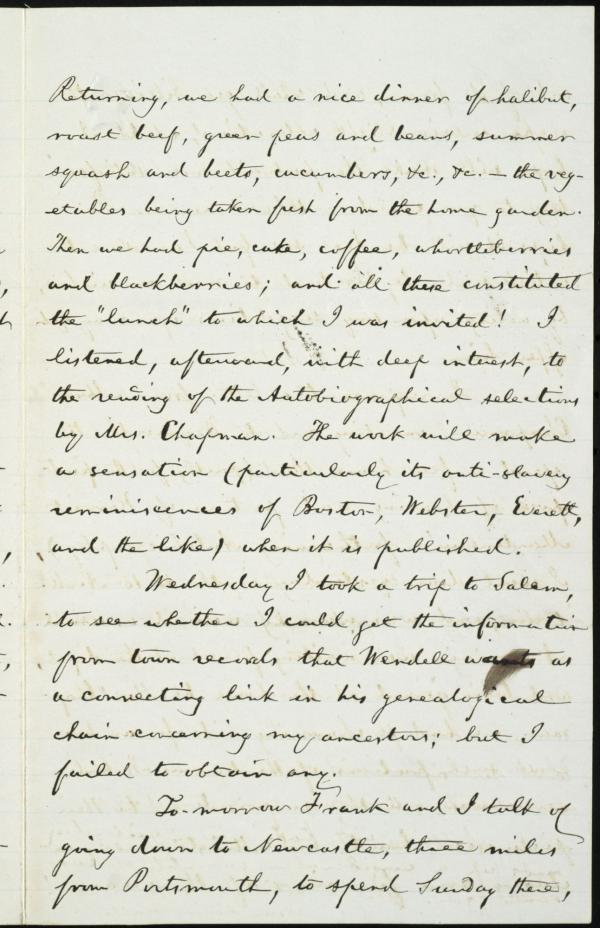 Returning, we had a nice dinner of halibut,
roast beef, green peas and beans, summer
squash and beets, cucumbers, &c., &c. — the veg-
etables being taken fresh from the home garden.
Then we had pie, cake, coffee, whortleberries
and blackberries; and all these constituted
the "lunch" to which I was invited! I
listened, afterward, with deep interest, to
the reading of the Autobiographical selections
by Mrs. Chapman. The work will make
a sensation (particularly its anti-slavery
reminiscences of Boston, Webster, Everett,
and the like) when it is published.
Wednesday I took a trip to Salem,
to see whether I could get the information
from town records that Wendell wants as
a connecting link in his genealogical
chain concerning my ancestors; but I
failed to obtain any.
To-morrow Frank and I talk of
going down to Newcastle, three miles
from Portsmouth, to spend Sunday there,